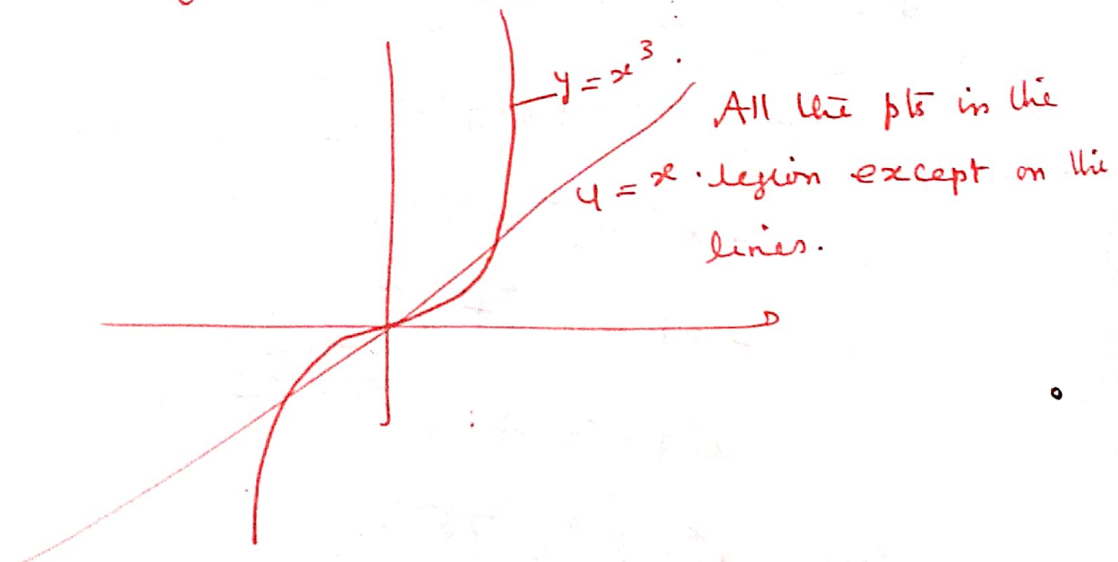 y = x³.
All the pts in the
y = x. region except on the
lines.